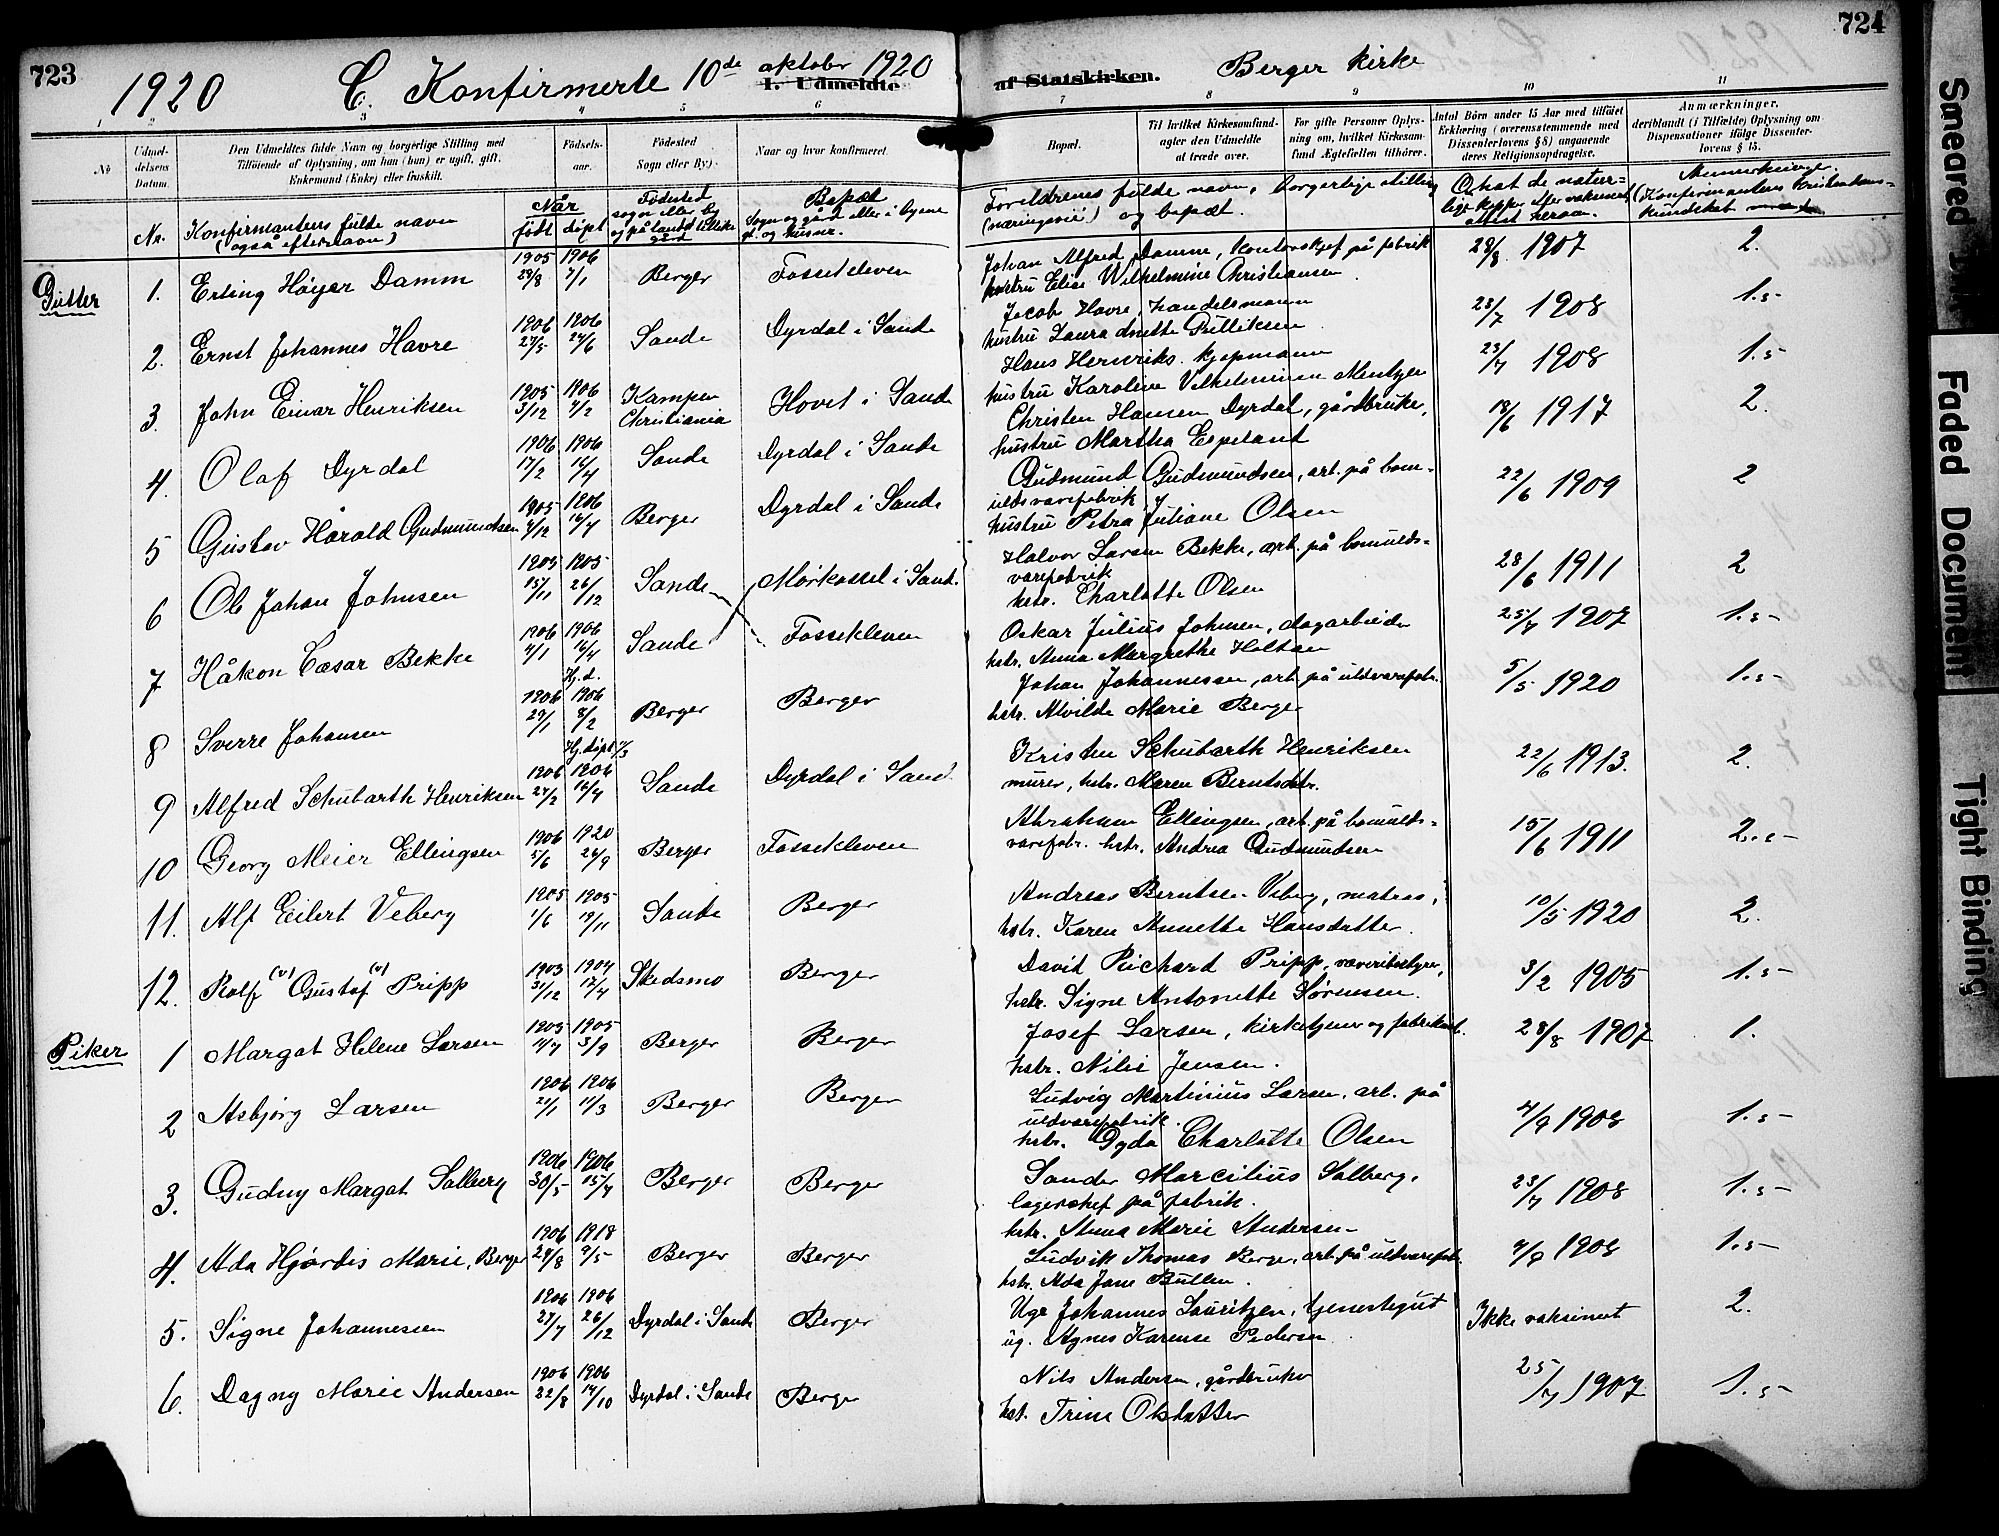 723
1920
C. Konfirmerte 10de oktober 1920
I. Udmeldte af Statskirken.
Berger kirke
724
1 2 3 4 5 6 7 8 9 10 11
No
Udmeldelsens Datum.
Den Udmeldtes fulde Navn og borgerlige Stilling med Tilføiende af Oplysning, om han (hun) er ugift, gift, Enkemand (Enke) eller fraskilt.
Fødselsaar.
Fødested Sogn eller By).
Naar og hvor konfirmeret.
Bopæl.
Til hvilket Kirkesamfund agter den Udmeldte at træde over.
For gifte Personer Oplysning om, hvilket Kirkesamfund Ægtefællen tilhører.
Antal Börn under 15 Aar med tilføiet Erklæring (overensstemmende med Dissenterlovens § 8) angaaende deres Religionsopdragelse.
Anmærkninger, deriblandt (i Tilfælde) Oplysning om Dispensationer ifölge Dissenterlovens § 15.
Nr.
Konfirmantens fulde navn (også efternavn)
Når født døpt
Fødested sogn eller by og på landet tillike gård
Bopæl Sogn og gård eller i byene gt. og husnr.
Foreldrenes fulde navn, borgerlige stilling (næringsvei) og bopæl.
Anmerkninger. (Konfirmantens kristendomskundskab
Gutter
1. Erling Høyer Damm 1905 28/8 1906 7/1 Berger Fossekleven Johan Alfred Damm, kontorchef på fabrik hustru Elise Wilhelmine Christiansen 28/8 1907 2.
2. Ernst Johannes Havre 1906 27/5 1906 24/6 Sande Dyrdal i Sande Jacob Havre, handelsmann hustru Laura Anette Gulliksen 23/7 1908 1.5
3. John Einar Henriksen 1905 3/12 1906 4/2 Kampen Christiania Hovet i Sande Hans Henriks. kjøpmann hustru Karoline Vilhelmine Mentzen 23/7 1908 1.5
4. Olaf Dyrdal 1906 17/2 1906 16/4 Sande Dyrdal i Sande Christen Hansen Dyrdal, gårdbruker, hustru Martha Espeland 18/6 1917 2.
5 Gustav Harald Gudmundsen 1905 4/12 1906 16/4 Berger Dyrdal i Sande Gudmund Gudmundsen, arb. på bomuldsvarefabrik hustru Petra Juliane Olsen 22/6 1909 2
6 Ole Johan Johnsen 1905 15/11 1905 26/12 Sande Mørkassel i Sand. Halvor Larsen Bekke, arb. på bomuldsvarefabrik hstr. Charlotte Olsen 28/6 1911 2
7 Håkon Cæsar Bekke 1906 4/1 1906 16/4 Sande Fossekleven Oskar Julius Johnsen, dagarbeider hstr. Anna Margrethe Holtan 25/7 1907 1.5-
8 Sverre Johansen 1906 29/1 Hj.d. 1906 8/2 Berger Berger Johan Johannessen, arb. på uldvarefabr. hstr. Alvilde Marie Berger 5/5 1920 1.5-
9 Alfred Schubarth Henriksen 1906 24/2 Hj.døpt 1/3 1906 16/4 Sande Dyrdal i Sand. Kristen Schubarth Henriksen murer, hstr. Maren Berntsdtr. 22/6 1913. 2.
10 Georg Meier Ellingsen 1906 5/6 1920 26/9 Berger Fossekleven Abraham Ellingsen, arb. på bomuldsvarefabr. hstr. Andrea Gudmundsen 15/6 1911 2.5-
11. Alf Eilert Veberg 1905 1/6 1905 19/11 Sande Berger Andreas Berntsen Veberg, matros, hstr. Karen Annette Hansdatter. 10/5 1920 2.
12. Rolf (v) Gustaf (v) Pripp 1903 31/12 1904 17/4 Skedsmo Berger David Richard Pripp, væveribestyrer, hstr. Signe Antonette Sørensen. 3/2 1905 1.5-
Piker
1 Margot Helene Larsen 1905 11/7 1905 3/9 Berger Berger Josef Larsen, kirketjener og fabrikarb. hstr. Nilie Jensen. 28/8 1907 1.
2 Asbjørg Larsen 1906 21/1 1906 11/3 Berger Berger Ludvig Martinius Larsen, arb. på uldvarefabrik. hstr. Gyda Charlotte Olsen 4/9 1908 1.5-
3. Gudny Margot Solberg 1906 30/5 1906 15/7 Berger Berger Sander Marcilius Solberg, lagerchef på fabrik. hstr. Anna Marie Andersen 23/7 1908 1.5-
4. Ada Hjørdis Marie, Berger 1906 24/8 1918 9/5 Berger Berger Ludvik Thomas Berger, arb. på uldvarefab. hstr. Ada Jane Bullen. 4/9 1908 1.5-
5. Signe Johannesen 1906 27/7 1906 26/12 Dyrdal i Sande Berger Uge Johannes Lauritzen, tjenestegut ug. Agnes Karense Pedersen Ikke vaksinert 2.
6. Dagny Marie Andersen 1906 22/8 1906 14/10 Dyrdal i Sande Berger Nils Andersen, gårdbruker hst. Trine Olsdatter 25/7 1907 1.5-
Smeared Ink
Faded Document
Tight Binding